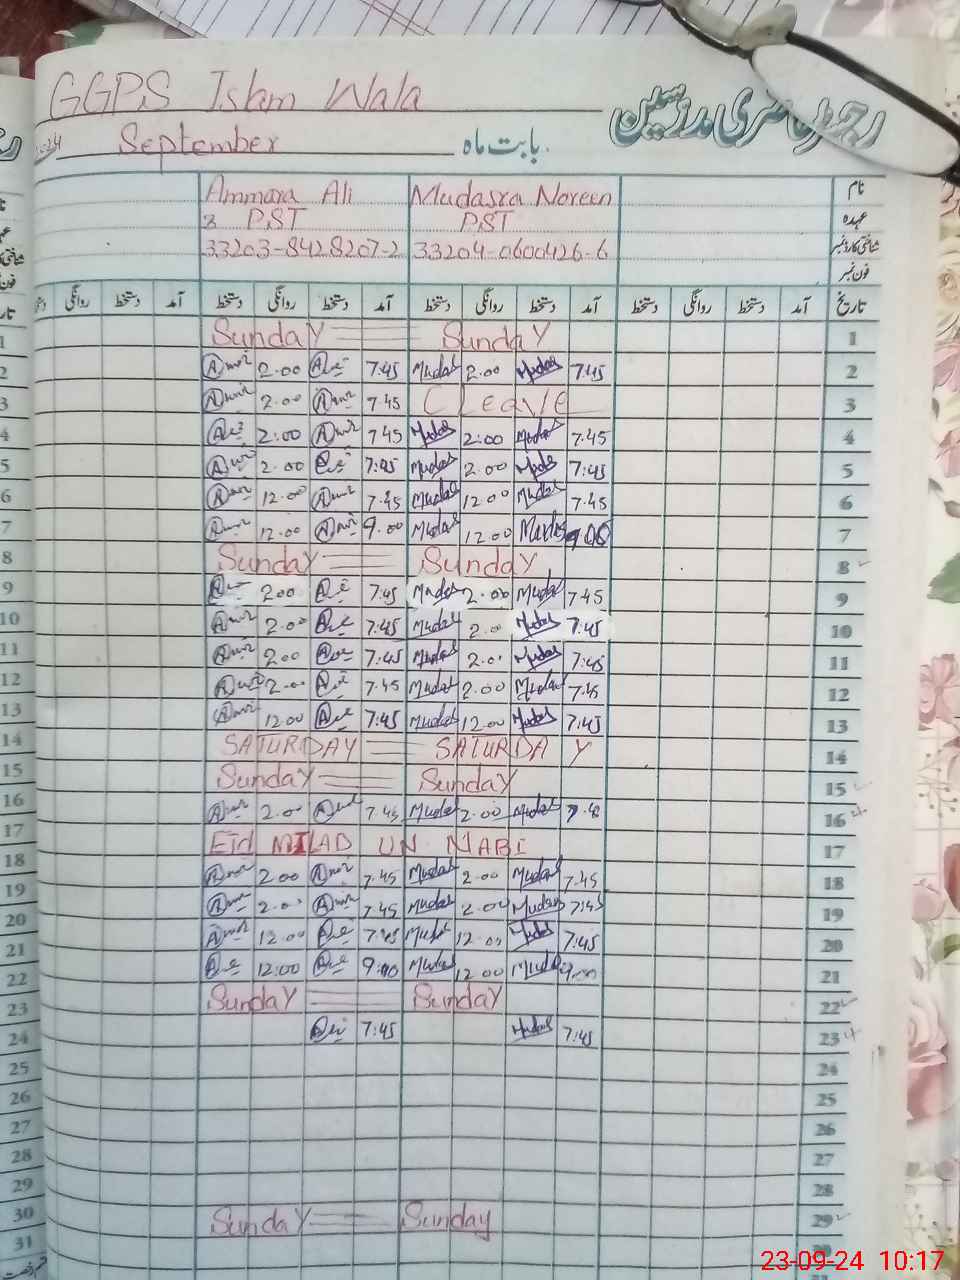 GGPS Islam Wala
رجسٹر حاضری مدرسین
2024 September بابت ماہ
Ammara Ali Mudasra Noreen نام
PST PST عہدہ
33203-8428207-2 33204-0600426-6 شناختی کارڈ نمبر
فون نمبر
روانگی دستخط آمد دستخط روانگی دستخط آمد دستخط روانگی دستخط آمد دستخط روانگی دستخط آمد تاریخ
1 Sunday Sunday 1
2 2.00 7.45 Mudas 2.00 Mudas 7.45 2
3 2.00 7.45 C Leave 3
4 2:00 7 45 Mudas 2:00 Mudas 7.45 4
5 2.00 7:45 Mudas 2.00 Muda 7:45 5
6 12.00 7.45 Mudas 12.00 Mudas 7.45 6
7 12.00 9.00 Mudas 12.00 Mudas 9.00 7
8 Sunday Sunday 8
9 2.00 7.45 Mudas 2.00 Mudas 7.45 9
10 2.00 7.45 Mudas 2.00 Mudas 7.45 10
11 2.00 7.45 Mudas 2.0 Mudas 7:45 11
12 2.00 7.45 Mudas 2.00 Mudas 7.45 12
13 12.00 7:45 Mudas 12.00 Mudas 7:45 13
14 SATURDAY SATURDAY 14
15 Sunday Sunday 15
16 2.00 7.45 Mudas 2.00 Mudas 16
17 Eid MILAD UN NABI 17
18 2.00 7.45 Mudas 2.00 Mudas 7.45 18
19 2.00 7.45 Mudas 2.00 Mudas 7:45 19
20 12.00 7.45 Mudas 12.00 Mudas 7:45 20
21 12:00 9:00 Mudas 12 00 Mudas 9.00 21
22 Sunday Sunday 22
23 7:45 Mudas 7:45 23
24 24
25 25
26 26
27 27
28 28
29 Sunday Sunday 29
30 30
31
23-09-24 10:17